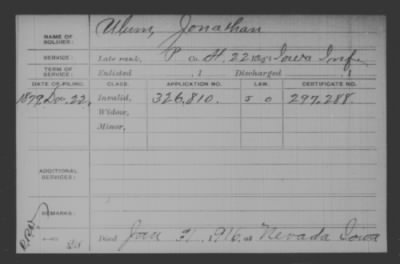 NAME OF SOLDIER: Ulum, Jonathan
SERVICE: Late rank, P Co. H, 22 Reg't Iowa Inf.
TERM OF SERVICE: Enlisted , 1 Discharged , 1
DATE OF FILING. CLASS. APPLICATION NO. LAW. CERTIFICATE NO.
1879 Dec. 22, Invalid, 326,810. J O 297,288.
Widow,
Minor,
ADDITIONAL SERVICES:
REMARKS:
Died Jan 31, 1916, at Nevada Iowa